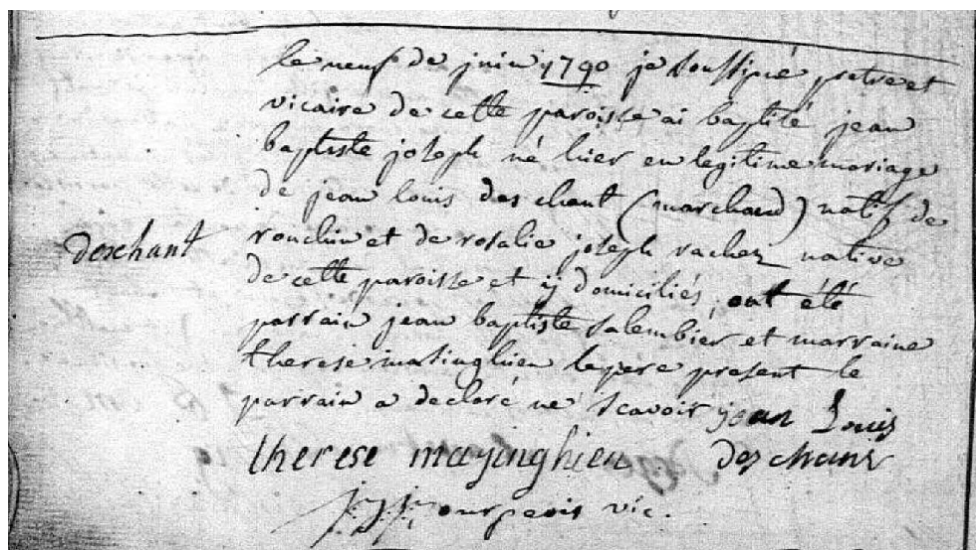 le neuf de juin 1790 je soussigné pretre et
vicaire de cette paroisse ai baptisé jean
baptiste joseph né hier en legitime mariage
de jean louis des chant (marchand) natif de
deschant
ronchin et de rosalie joseph rachez native
de cette paroisse et ij domiciliés, ont été
parrain jean baptiste salembier et marraine
therese masinghien le pere present le
parrain a declaré ne scavoir jean Louis
therese mazinghien deschans
vic.